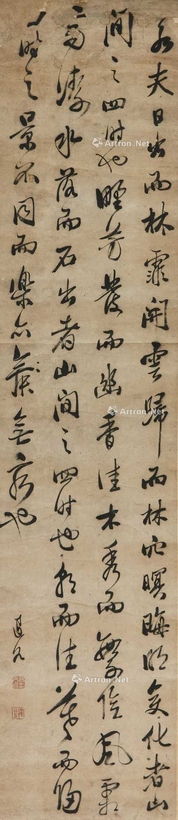 若夫日出而林霏開雲歸而林穴暝晦明變化者山
間之四時也野芳發而幽香佳木秀而繁陰風霜
高潔水落而石出者山間之四時也朝而往暮而歸
四時之景不同而樂亦無窮也